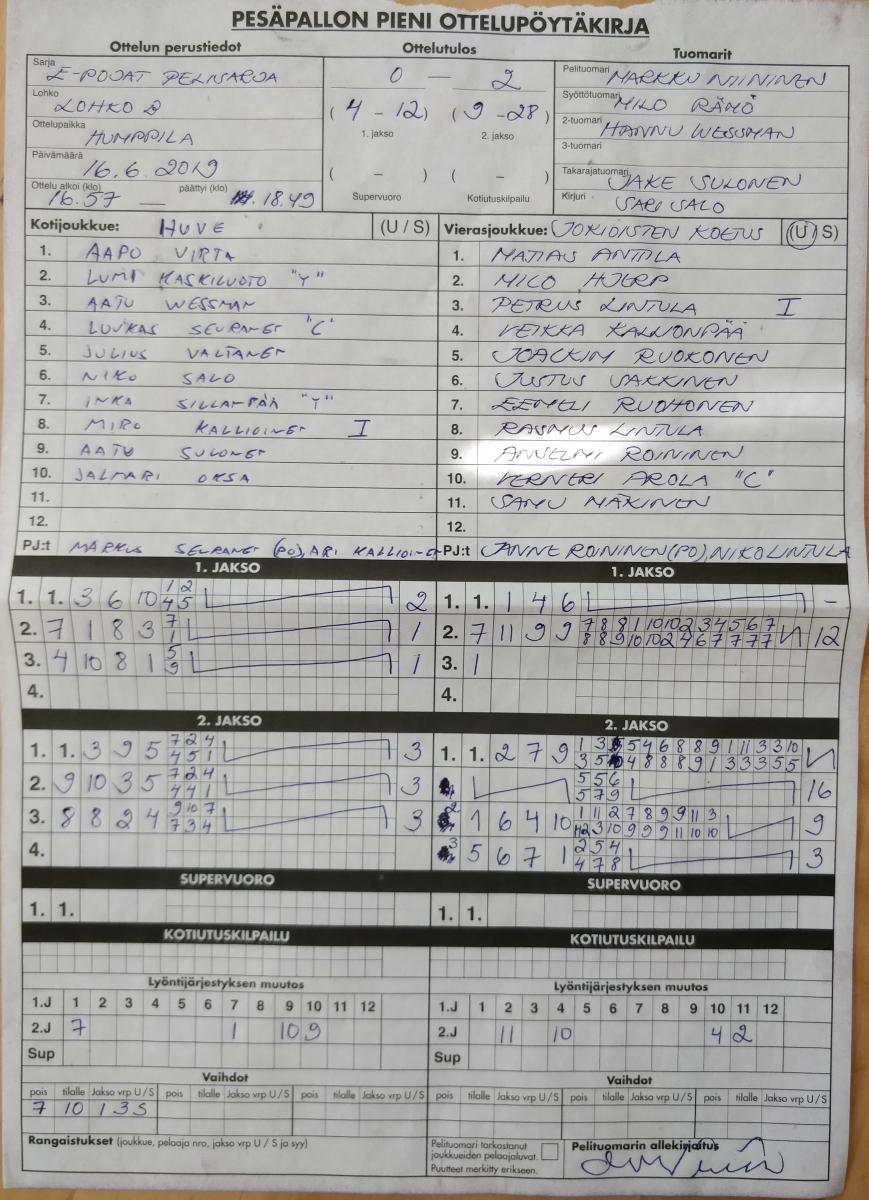 PESÄPALLON PIENI OTTELUPÖYTÄKIRJA
Ottelun perustiedot
Ottelutulos
Tuomarit
Sarja
E-POJAT PELISARJA
Lohko
LOHKO 2
Ottelupaikka
HUMPPILA
Päivämäärä
16.6.2019
Ottelu alkoi (klo) päättyi (klo)
16.57 — 18.49
0 — 2
(4 - 12) (9 - 28)
1. jakso 2. jakso
( - ) ( - )
Supervuoro Kotiutuskilpailu
Pelituomari MARKKU NIININEN
Syöttötuomari MILO RÄMÖ
2-tuomari HANNU WESSMAN
3-tuomari
Takarajatuomari JAKE SULONEN
Kirjuri SARI SALO
Kotijoukkue: HUVE (U / S)
1. AAPO VIRTA
2. LUMI KASKILUOTO "Y"
3. AATU WESSMAN
4. LUUKAS SEURANEN "C"
5. JULIUS VALTANEN
6. NIKO SALO
7. INKA SILLANPÄÄ "Y"
8. MIRO KALLIOINEN I
9. AATU SULONEN
10. JALMARI OKSA
11.
12.
PJ:t MARKUS SEURANEN (PO), ARI KALLIOINEN
Vierasjoukkue: JOKIOISTEN KOETUS (U / S)
1. MATIAS ANTTILA
2. MILO HJERP
3. PETRUS LINTULA I
4. VEIKKA KALLIONPÄÄ
5. JOACKIM RUOKONEN
6. JUSTUS VAKKINEN
7. EEMELI RUOHONEN
8. RASMUS LINTULA
9. ANSELMI ROININEN
10. VERNERI AROLA "C"
11. SAMU MÄKINEN
12.
PJ:t JANNE ROININEN (PO), NIKO LINTULA
1. JAKSO
1. 1. 3 6 10 1 2 2
4 5
2. 7 1 8 3 7 1
1
3. 4 10 8 1 5 1
9
4.
1. JAKSO
1. 1. 1 4 6 -
2. 7 11 9 9 7 8 8 1 10 10 2 3 4 5 6 7 12
8 8 9 10 10 2 4 6 7 7 7 7
3. 1
4.
2. JAKSO
1. 1. 3 9 5 7 2 4 3
4 5 1
2. 9 10 3 5 7 2 4 3
4 4 1
3. 8 8 2 4 9 10 7 3
7 3 4
4.
2. JAKSO
1. 1. 2 7 9 1 3 5 4 6 8 8 9 1 11 3 3 10
3 5 4 8 8 8 9 1 3 3 3 5 5
5 5 6 16
5 7 9
2 1 6 4 10 1 11 2 7 8 9 9 11 3 9
2 3 10 9 9 9 11 10 10
3 5 6 7 1 2 5 4 3
4 7 8
SUPERVUORO
1. 1.
SUPERVUORO
1. 1.
KOTIUTUSKILPAILU
KOTIUTUSKILPAILU
Lyöntijärjestyksen muutos
1.J 1 2 3 4 5 6 7 8 9 10 11 12
2.J 7 1 10 9
Sup
Lyöntijärjestyksen muutos
1.J 1 2 3 4 5 6 7 8 9 10 11 12
2.J 11 10 4 2
Sup
Vaihdot
pois tilalle Jakso vrp U / S pois tilalle Jakso vrp U / S pois tilalle Jakso vrp U / S
7 10 1 3 S
Vaihdot
pois tilalle Jakso vrp U / S pois tilalle Jakso vrp U / S pois tilalle Jakso vrp U / S
Rangaistukset (joukkue, pelaaja nro, jakso vrp U / S ja syy)
Pelituomari tarkastanut
joukkueiden pelaajaluvat.
Puutteet merkitty erikseen.
Pelituomarin allekirjoitus